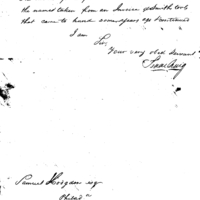 the names taken from an Invoice of Smiths tools
that came to hand some years ago
I am
Sir,
Your very obed Servant
Isaac Craig
Samuel Hodgdon esq
Philad a